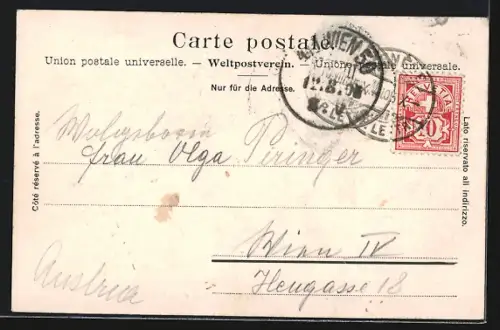 Carte postale.
Union postale universelle. – Weltpostverein. – Unione postale universale.
Nur für die Adresse.
Côté réservé à l'adresse.
Lato riservato all indirizzo.
WIEN
HELVETIA
10
Frau Olga Peringer
Wien IV
Heugasse 18
Austria